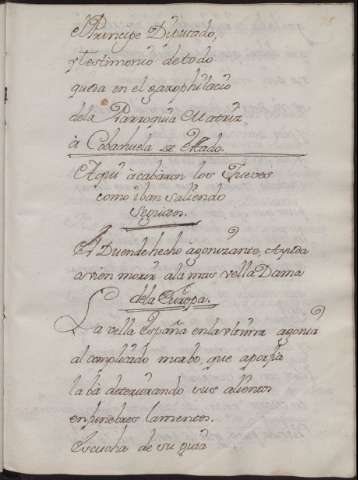 el Principe Diputado,
y testimonio de todo
queda en el
dela Parroquia Matriz
à Cobachuela de Estado.
Aqui acabaron los Jueves
como iban saliendo
siguen.
El Duende hecho agonizante, Ayuda
a vien morir a la mas vella Dama
de la Europa.
La vella España en la ultima agonia
al complicado morbo, que aporfia
la bà deteriorando sus alientos
en funebres lamentos.
Escucha de su guia